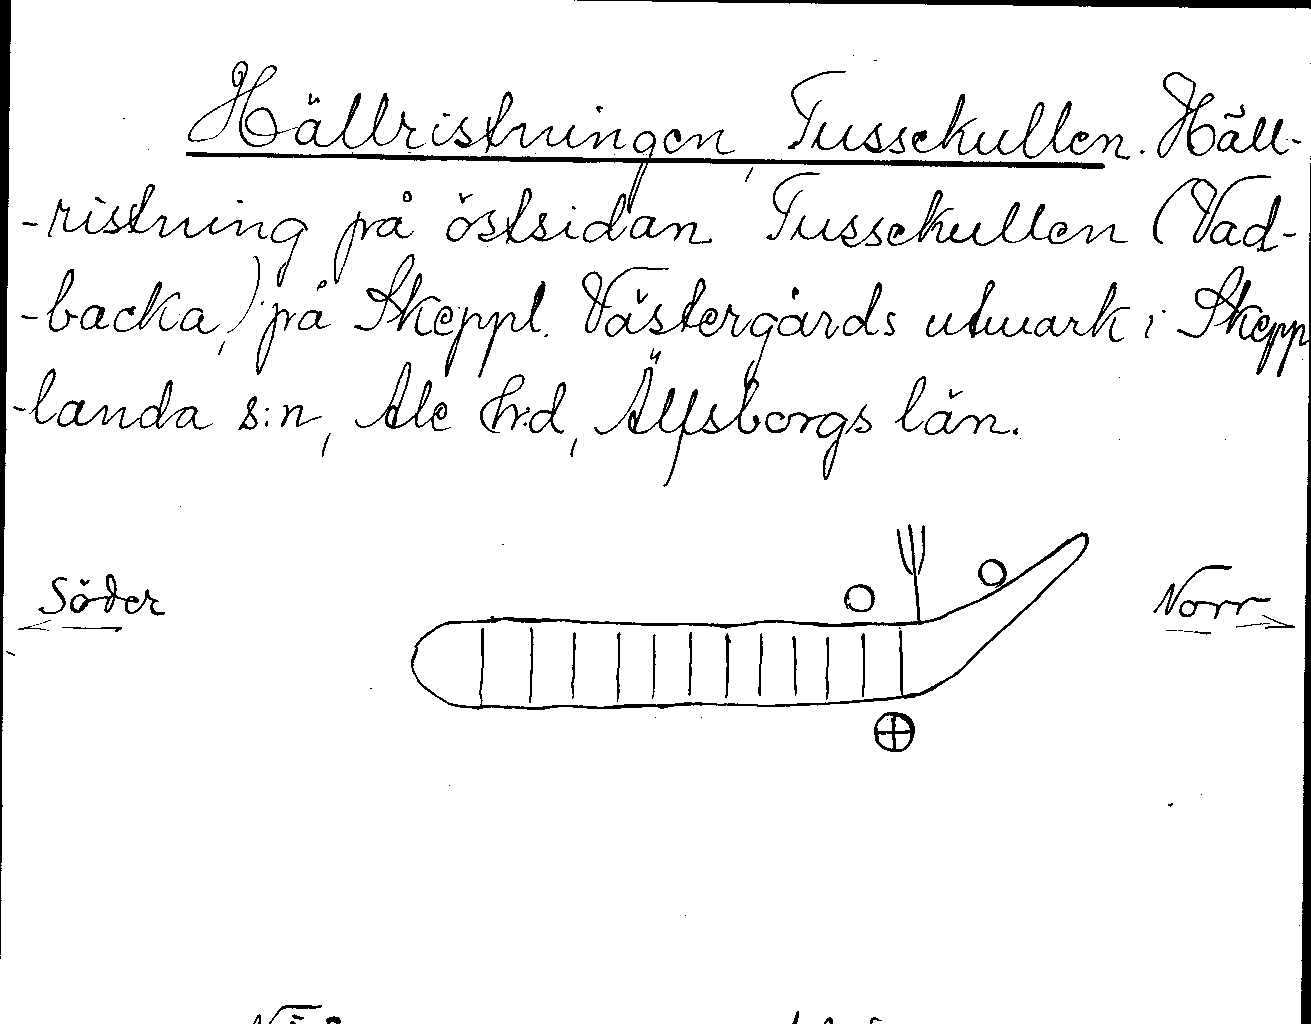 Hällristningen, Tussekullen. Häll-
-ristning på östsidan Tussekullen (Vad-
-backa,) på Skeppl. Västergårds utmark i Skepp
-landa s:n, Ale hrd, Älfsborgs län.
Söder
Norr